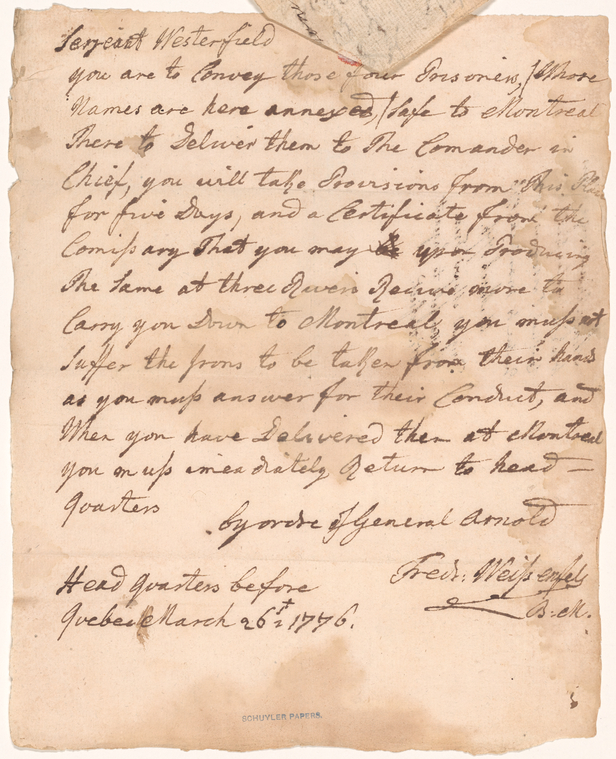 Serjeant Westerfield
you are to Convey those four Prisoners, [Whose
Names are here annexed,] Safe to Montreal
There to Deliver them to The Comander in
Chief, you will take Provisions from This Place
for five Days, and a Certificate from the
Comißary That you may upon Producing
The Same at three Rivers Receive more to
Carry you Down to Montreal, you muß not
Suffer the Irons to be taken from their hands
as you muß answer for their Conduct, and
When you have Delivered them at Montreal
you muß imeadiately Return to head —
quarters
by ordre of General Arnold
Fredk: Weißenfels
B: M.
Head quarters before
Quebec March 26st: 1776.
SCHUYLER PAPERS.